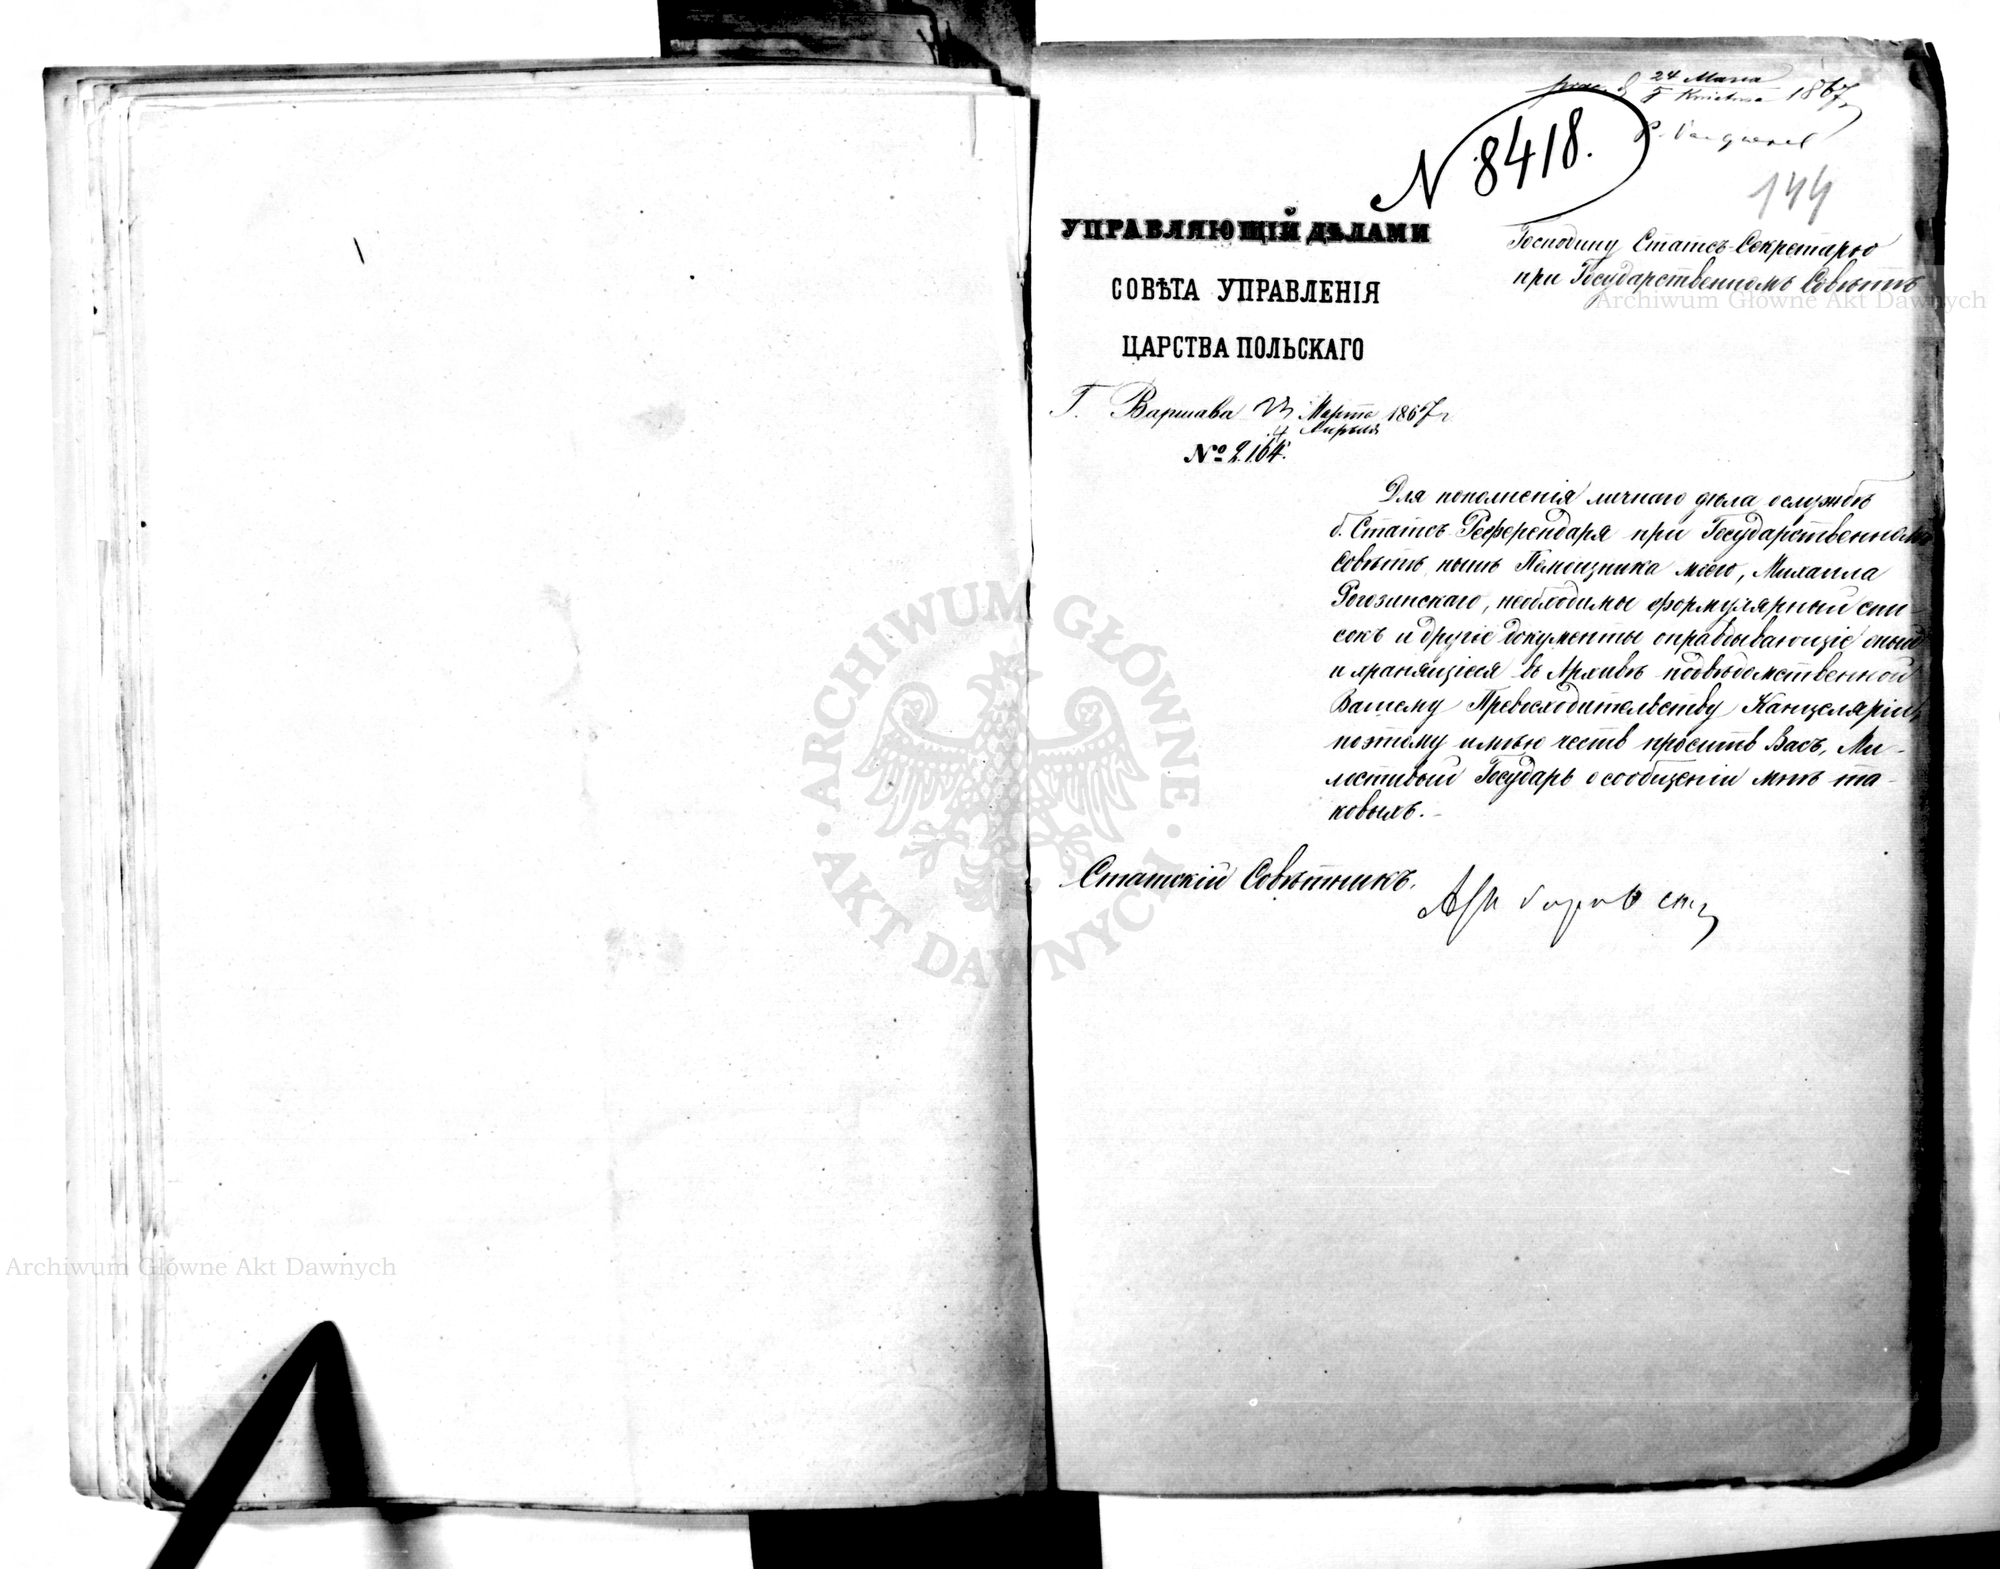 24 Marca
5 Kwietnia 1867
N 8418.
144
УПРАВЛЯЮЩІЙ ДѢЛАМИ
СОВѢТА УПРАВЛЕНІЯ
ЦАРСТВА ПОЛЬСКАГО
Господину Статсъ-Секретарю
при Государственномъ Совѣтѣ
Г. Варшава 23 Марта 1867 г.
4 Апрѣля
№ 2164.
Для пополненія личнаго дѣла о службѣ
б. Статсъ-Референдаря при Государственномъ
Совѣтѣ, нынѣ Помощника моего, Михаила
Рогозинскаго, необходимы формулярный спи-
сокъ и другіе документы оправдывающіе оный
и хранящіеся въ Архивѣ подвѣдомственной
Вашему Превосходительству Канцеляріи,
поэтому имѣю честь просить Васъ, Ми-
лостивый Государь о сообщеніи мнѣ та-
ковыхъ.
Статскій Совѣтникъ.
Archiwum Główne Akt Dawnych
ARCHIWUM GŁÓWNE
AKT DAWNYCH
Archiwum Główne Akt Dawnych